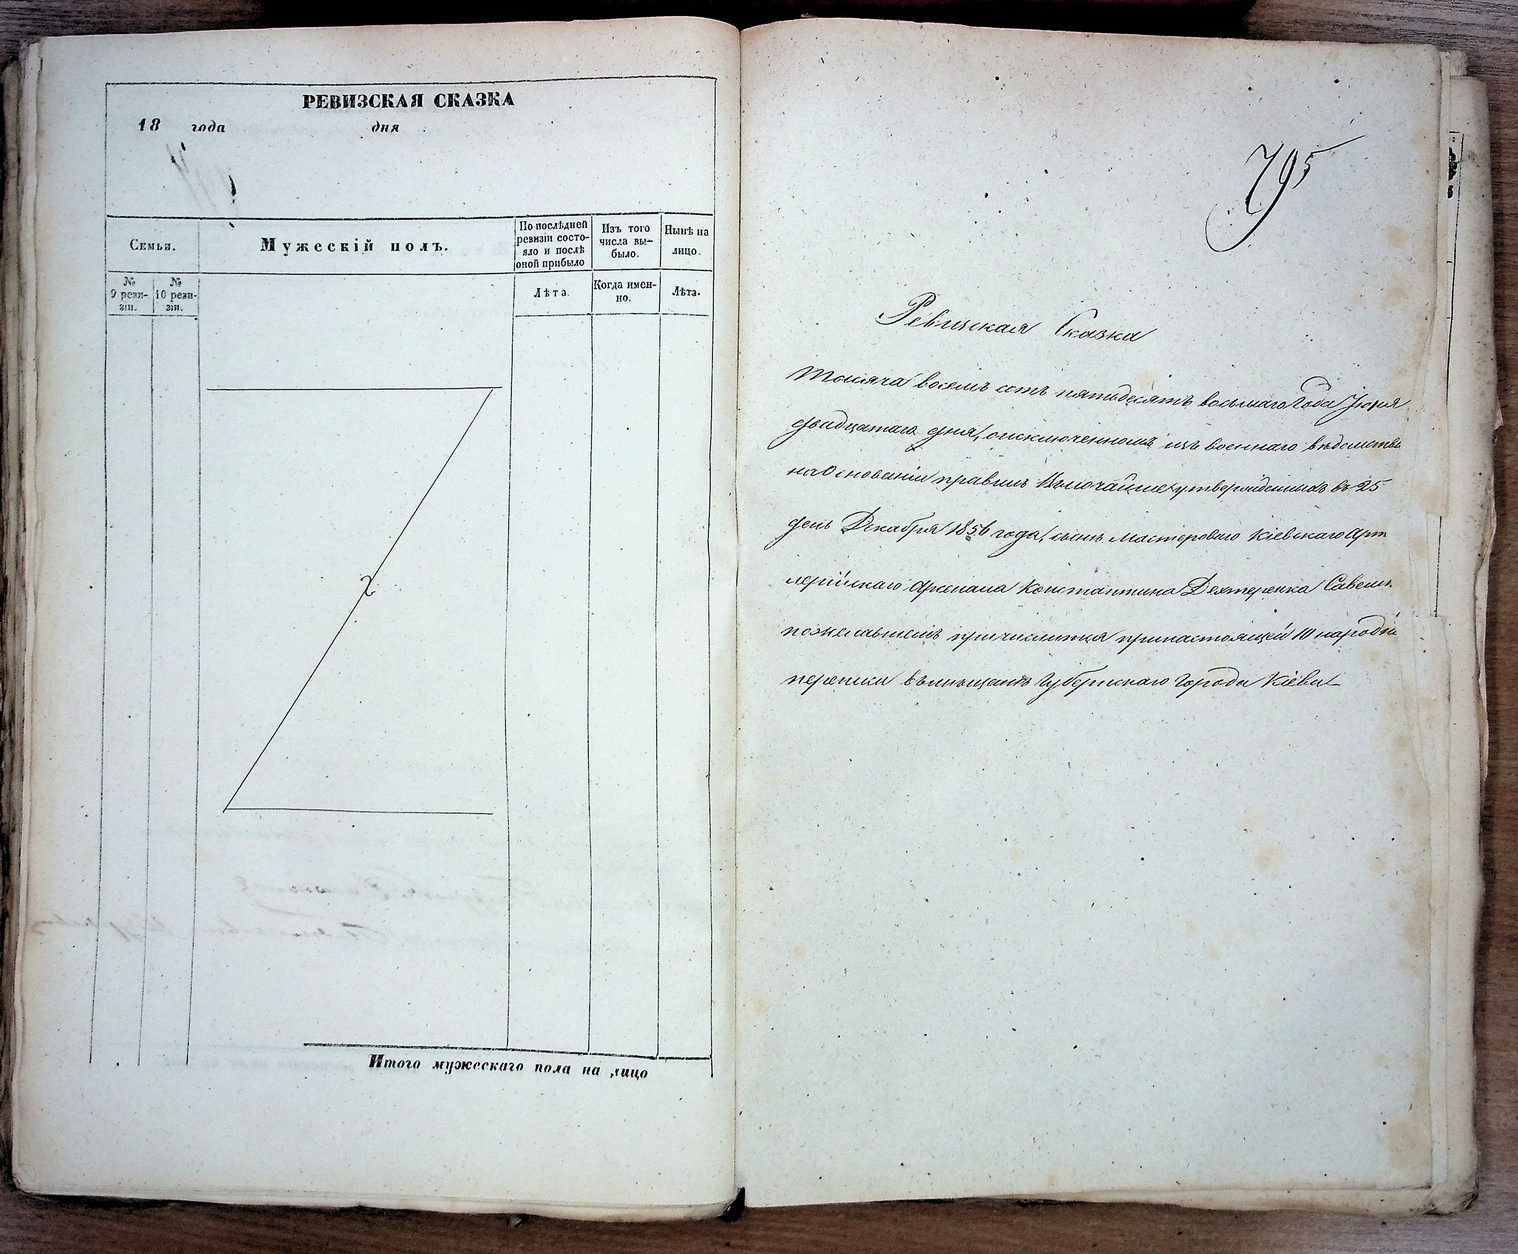 РЕВИЗСКАЯ СКАЗКА
18 года дня
Семьи.
Мужескій полъ.
По послѣдней
ревизіи состо-
яло и послѣ
оной прибыло
Изъ того
числа вы-
было.
Нынѣ на
лицо.
№
9 реви-
зіи.
№
10 реви-
зіи.
Лѣта.
Когда имен-
но.
Лѣта.
Итого мужескаго пола на лицо
795
Ревизская Сказка
Тысяча восемь сотъ пятьдесятъ восьмаго Года Іюня
двадцатаго дня, о исключенномъ изъ военнаго вѣдомства
на Основаніи правилъ Высочайше утвержденныхъ въ 25
день Декабря 1856 года, сынѣ Мастероваго Кіевскаго Арти
лерійскаго Арсенала Константина Дехтеренка Савел
пожелавшемъ причислится при настоящей 10 народной
переписи въ мѣщане Губернскаго Города Кіева